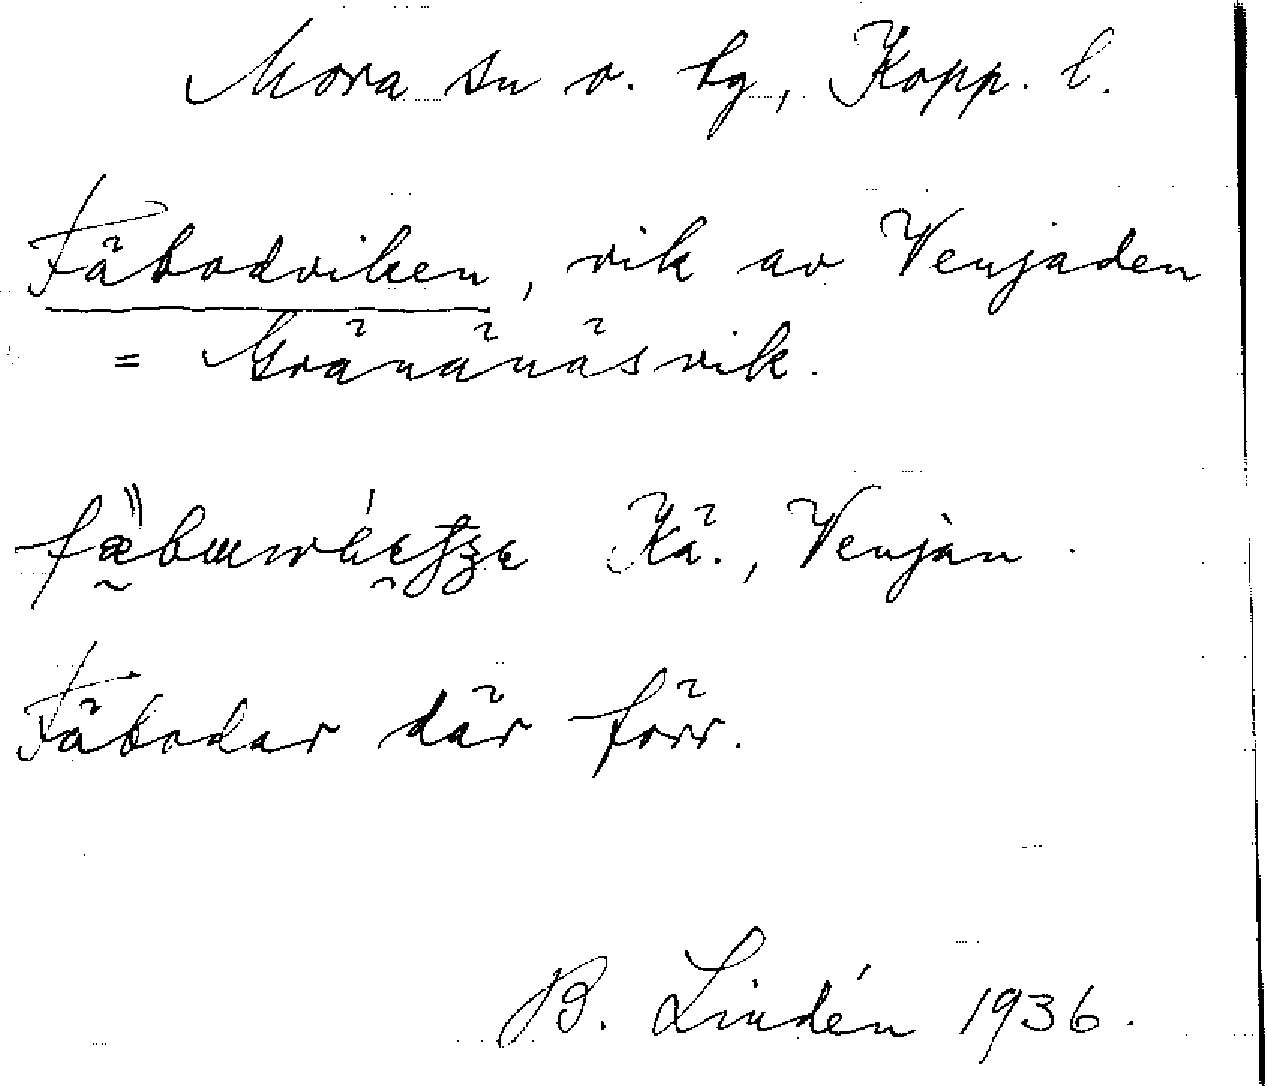 Mora sn o. tg, Kopp. l.
Fäbodviken, vik av Venjaden
= Gränänäsvik.
Kä., Venjan
Fäbodar där förr.
B. Lindén 1936.